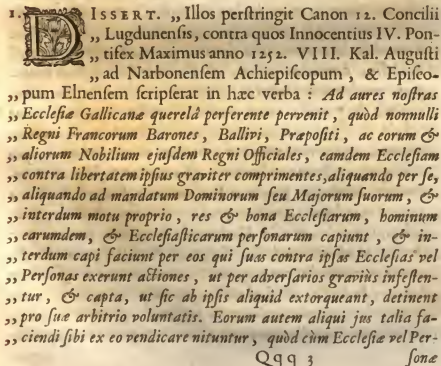 1. DISSERT. „ Illos perſtringit Canon 12. Concilii
„ Lugdunenſis, contra quos Innocentius IV. Pon-
„ tifex Maximus anno 1252. VIII. Kal. Auguſti
„ ad Narbonenſem Achiepiſcopum, & Epiſco-
„ pum Elnenſem ſcripſerat in hæc verba : Ad aures noſtras
„ Eccleſiæ Gallicanæ querelâ perferente pervenit, quòd nonnulli
„ Regni Francorum Barones, Ballivi, Præpoſiti, ac eorum &
„ aliorum Nobilium ejuſdem Regni Officiales, eamdem Eccleſiam
„ contra libertatem ipſius graviter comprimentes, aliquando per ſe,
„ aliquando ad mandatum Dominorum ſeu Majorum ſuorum, &
„ interdum motu proprio, res & bona Eccleſiarum, hominum
„ earumdem, & Eccleſiaſticarum perſonarum capiunt, & in-
„ terdum capi faciunt per eos qui ſuas contra ipſas Eccleſias vel
„ Perſonas exerunt actiones, ut per adverſarios graviùs infeſten-
„ tur, & capta, ut ſic ab ipſis aliquid extorqueant, detinent
„ pro ſuæ arbitrio voluntatis. Eorum autem aliqui jus talia fa-
„ ciendi ſibi ex eo vendicare nituntur, quòd cùm Eccleſiæ vel Per-
Qqq 3 ſonæ